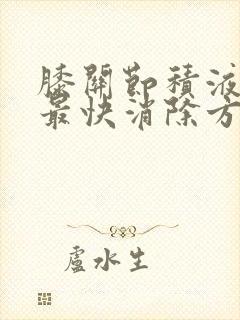 膝關節積液
最快消除方
盧水生